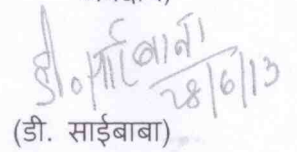 डी. साईबाबा
28/6/13
(डी. साईबाबा)